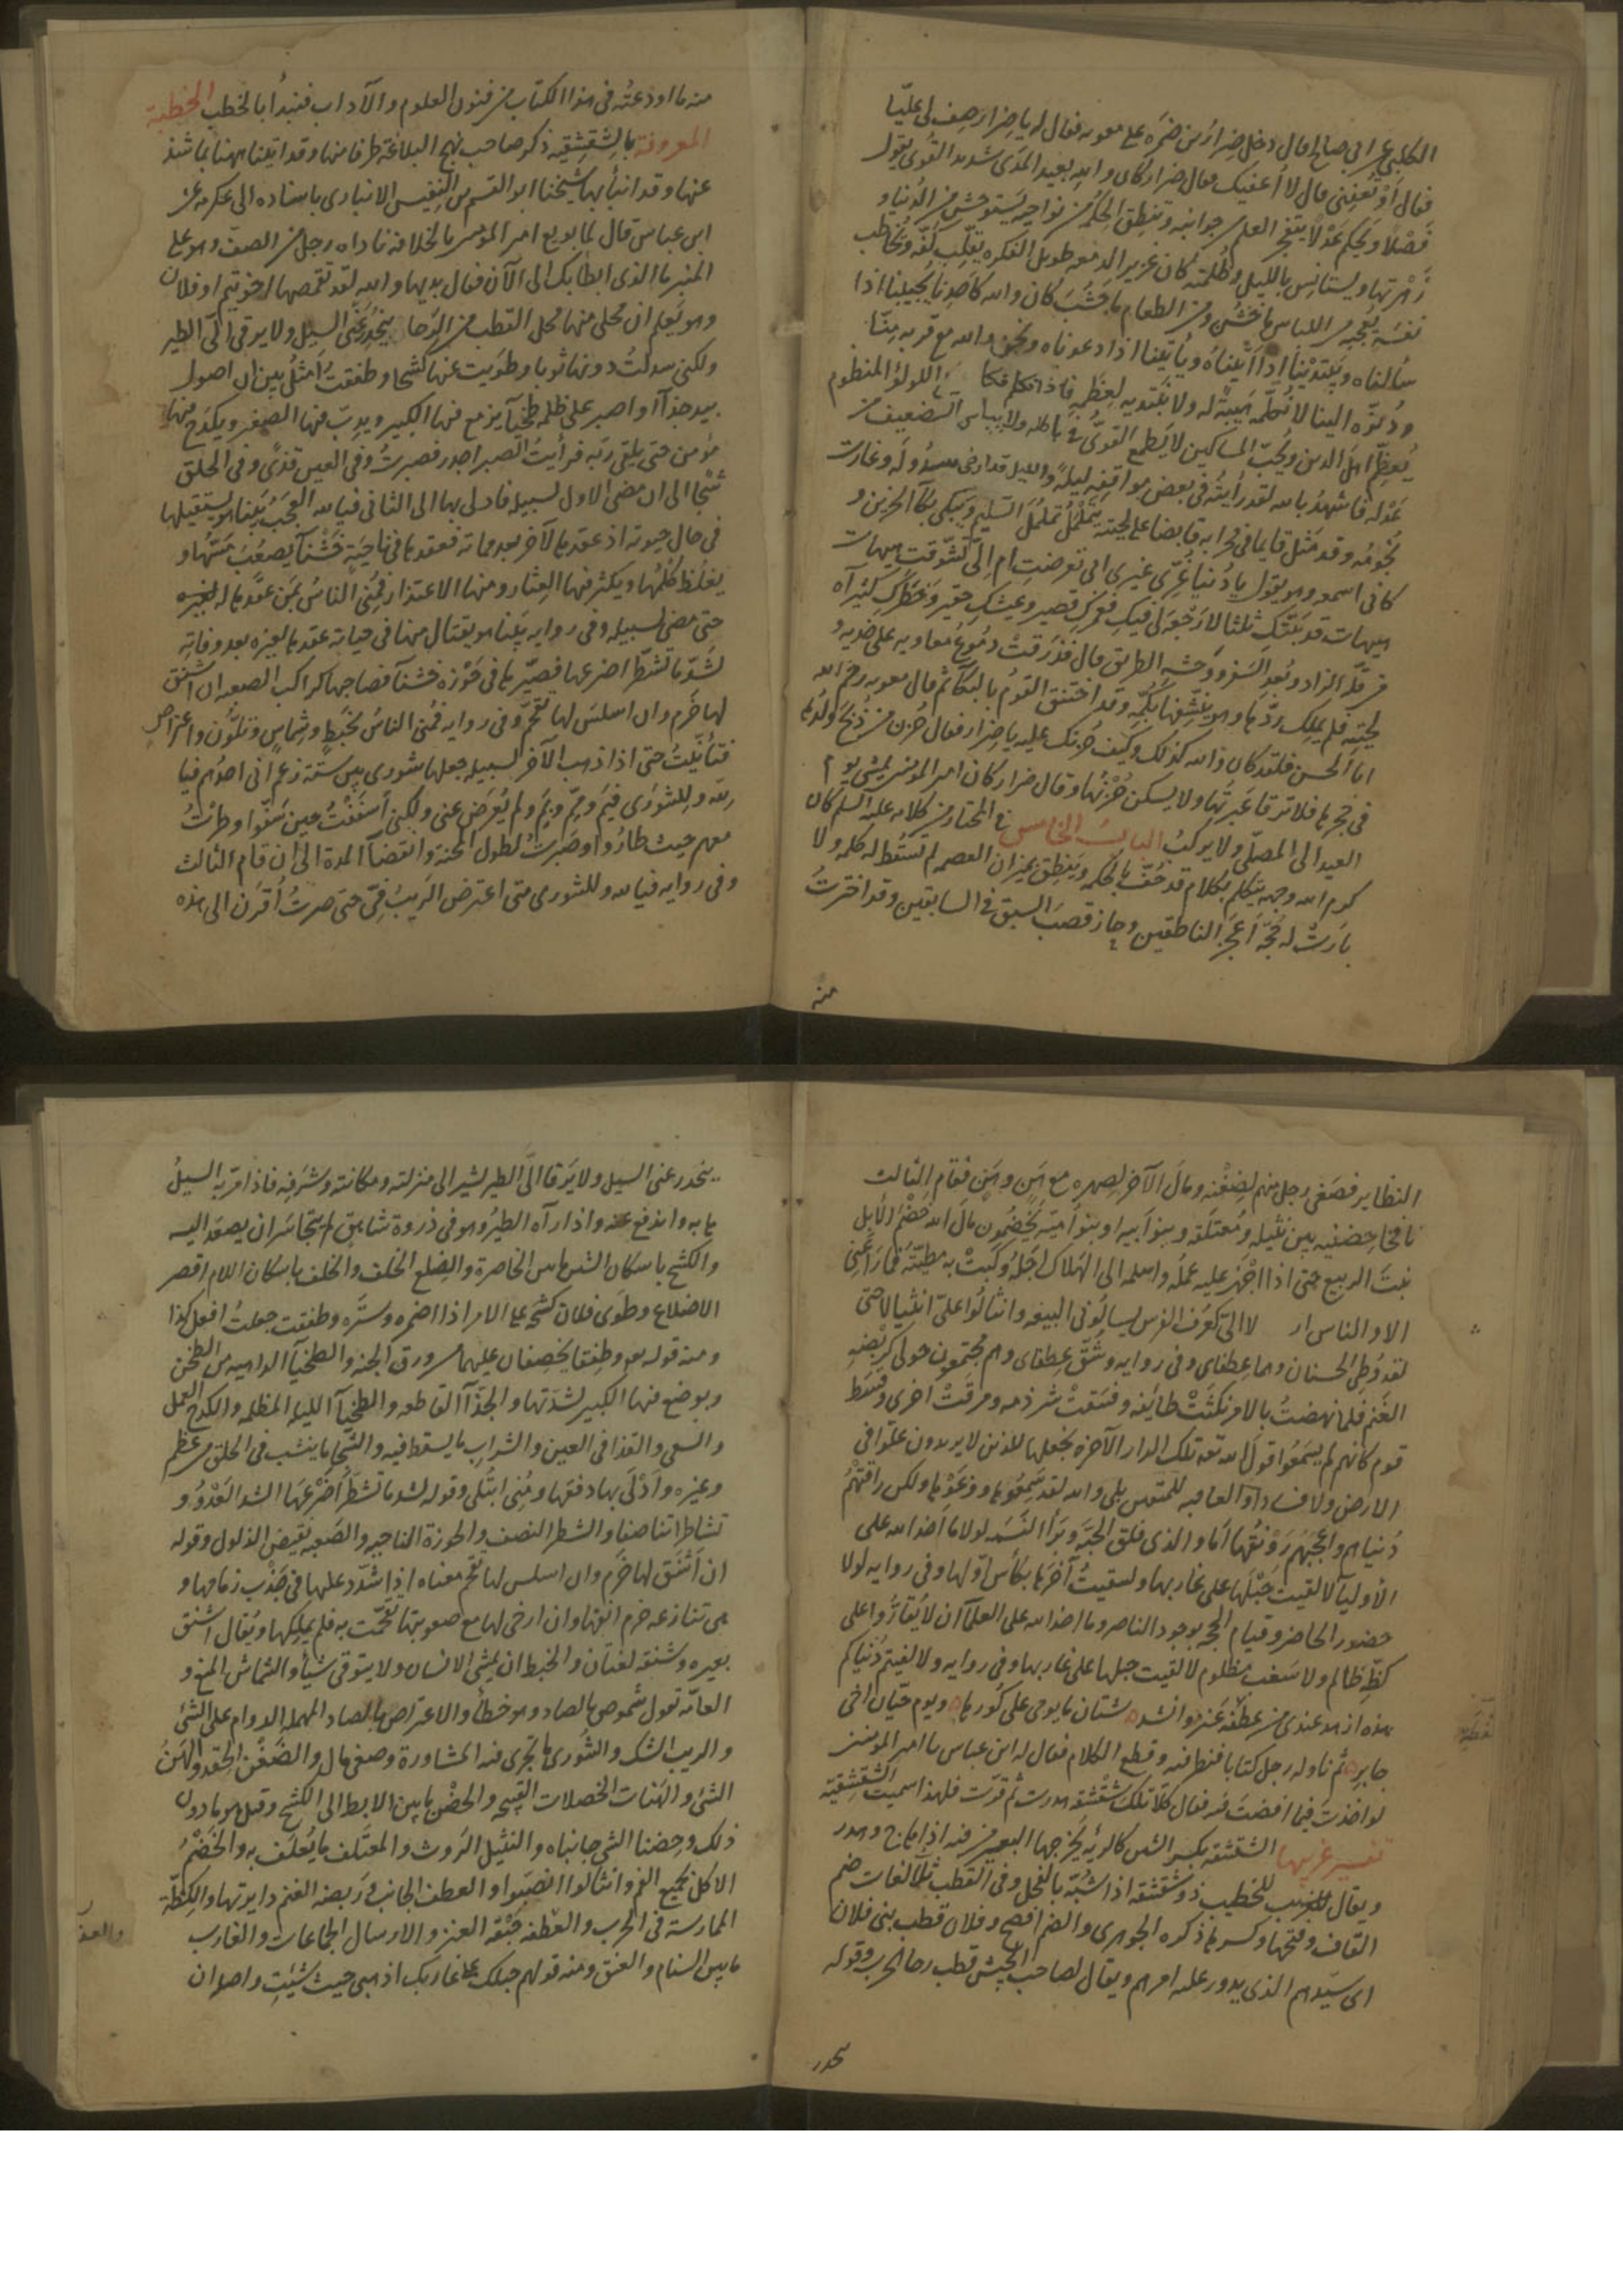 الكلبي عن ابي صالح قال دخل ضرار بن ضمره على معويه فقال له يا ضرار صف لي عليّا
فقال أوَ تُعفيني قال لا أعفيك فقال ضرار كان والله بعيد المدى شديد القوى يقول
فَصْلاً ويحكم عدلًا يتفجر العلم من جوانبه وتنطق الحكمة من نواحيه يستوحش من الدنيا و
زَهْرتها ويستانس بالليل وظلمته كان غزير الدمعه طويل الفكره يقلّب كفّه ويخاطب
نفسَه يُعجبه من اللباس ما خشُن ومن الطعام ما جَشُبَ كان والله كأحدنا يُجيبنا اذا
سألناه ويَبتدينا اذا أتيناهُ ويأتينا اذا دعوناه ونحن والله مع قربه منّا
ودُنوّه الينا لا نُكلّمه هيبةً له ولا نبتديه لعِظَمِه فاذا تكلم فكا اللولؤ المنظوم
يُعظّم اهلَ الدين ويُحبّ المساكين لا يَطمع القويُّ في باطله ولا ييأس الضعيف من
عَدْله فاشهدُ بالله لقد رأيتُه في بعض مواقفِه ليلةً والليل قد ارخى سدوله وغارت
نُجُومُه وقد مَثل قايما في محرابه قابضا على لحيته يَتَمَلْمَلُ تَمَلمُلَ السليم ويَبكي بكآ الحزين و
كاني اسمعه وهو يقول يا دُنيا غُرّي غيري الي تعرضتِ ام اليّ تشوّقت هيهات
هيهات قد بَتَتُّكِ ثلثا لا رَجْعَه لي فيكِ فعمركِ قصير وعيشكِ حقير وخطركِ كثير آه
من قلّه الزاد وبُعدِ السفر ووَحشه الطريق قال فذرفتْ دُمُوعُ معاويه على خديه و
لحيته فلم يملك ردّها وهو ينشّفها بكُمّه وقد اختنق القوم بالبكآ ثم قال معويه رحم الله
ابا الحسن فلقد كان والله كذلك وكيف حُزنك عليه يا ضرار فقال حُزن من ذُبحَ ولدُها
في حجرها فلا ترقا عَبرتُها ولا يسكن حُزْنُها وقال ضرار كان امير المؤمنين يمشي يوم
العيد الى المصلّى ولا يركبُ البابُ الخامس في المختار من كلامه عليه السلم كان
كرم الله وجهه يتكلم بكلام قد حُفّ بالحكمه وينطق بميزان العصمه لم تسقُط له كلمه ولا
بارَتْ له حُجّه أعجَزَ الناطقين وحاز قصَب السبق في السابقين وقد اخترتُ
منه
منه ما اودعتُه في هذا الكتاب من فنون العلوم والآداب فنبدأ بالخطب الخطبة
المعروفة بالشقشقيه ذكر صاحب نهج البلاغة طرفا منها وقد اتينا بها هنا بما شذ
عنها وقد انبأ بها شيخنا ابو القسم بن النفيس الانباري باسناده الى عكرمه عن
ابن عباس قال لما بويع امير المؤمنين بالخلافة ناداه رجل من الصف وهو على
المنبر ما الذي ابطا بك الى الآن فقال بديها والله لقد تقمصها اخو تيم او فلان
وهو يَعلم ان محلي منها محل القطب من الرّحا ينحدِرُ عني السيل ولا يرقى اليّ الطير
ولكني سدلتُ دونها ثوبا وطويت عنها كشحا وطفقتُ أمثلُ بين ان اصول
بيد جذآ او اصبر على ظلمه طخيآ يَزمع فيها الكبير ويدِبّ فيها الصغير ويكدَح فيها
مؤمن حتى يلقى ربّه فرأيتُ الصبر اجدر فصبرتُ وفي العين قذًى وفي الحلق
شجًا الى ان مضى الاول لسبيله فادلى بها الى الثاني فيالله العجبُ بَينا هو يستقيلها
في حال حيوته اذ عقدها لآخر بعد مماته فعقدها في ناحيةٍ خشنآ يصعُبُ مَسّها و
يغلُظ كَلْمُها ويكثر فيها العثار ومنها الاعتذار فمُني الناسُ بمَن عقدها له لغيره
حتى مضى لسبيله وفي روايه بَينا هو يقتال منها في حياته عقدها لغيره بعد وفاته
لشدّ ما تشطّرا ضرعيها فصيّرها في حَوْزه خشنآ فصاحبها كراكب الصعبه ان اشنق
لها خَرَم وان اسلسَ لها تقحّم وفي روايه فمُني الناسُ بخَبْطٍ وشِماس وتلوّن واعتراض
فتأنّيتُ حتى اذا ذهب الآخر لسبيله جعلها شورى بين ستّة زعم اني احدُهم فيا
لله وللشورى فيم وممّ وبمَ ولم يُعرَض عني ولكني أسفَفْتُ حين سَفّوا وطِرْتُ
معهم حيث طارُوا وصَبرتُ لطول المحنة وانقضآ المدة الى ان قام الثالث
وفي روايه فيالله وللشورى متى اعترض الرّيبُ فيّ حتى صرتُ أُقرن الى هذه
النظاير فصغى رجل منهم لضغْنه ومال الآخر لصهره مع هَنٍ وهَنٍ فقام الثالث
نافجا حِضنيه بين نثيله ومُعتَلَفِه وبنو أبيه او بنو أمية يَخضمون مال الله خَضْمَ الابل
نبتَ الربيع حتى اذا اجْهَز عليه عملُه واسلمه الى الهلاك اجلُه وكبَتْ به مطيّتُه فما راعني
الا والناس ار لا اليّ كعُرفِ الفرس يسألوني البيعه وانثالُوا عليّ انثيالا حتى
لقد وُطي الحسنان وهما عِطفاي وفي روايه وشُقّ عِطفاي وهم مجتمعون حولي كربْضه
الغَنم فلما نهضتُ بالامر نكثَتْ طائفه وفسَقتْ شرذمه ومرقتْ اخرى وقسَط
قوم كانهم لم يسمعُوا قولَ الله تعه تلك الدار الآخره نجعلها للذين لا يريدون علوّا في
الارض ولا فسادا والعاقبه للمتقين بلى والله لقد سَمِعُوها ووَعَوْها ولكن راقتْهُم
دُنياهم واعجبَهُم رَوْنقُها أمَا والذي فلق الحبَّه وبَرأ النّسَمه لولا ما اخذ الله على
الأوليآ لالقيتُ حَبْلَها على غاربها ولسقيتُ آخرَها بكأس اوّلها وفي روايه لولا
حضور الحاضر وقيام الحجه بوجود الناصر وما اخذ الله على العلمآ ان لا يُقارُّوا على
كِظّه ظالم ولا سَغب مظلوم لالقيت حبلها على غاربها وفي روايه ولالفيتم دُنياكم
هذه ازهد عندي من عطفه عنز وانشده شتان ما يومي على كُورها ه ويوم حيّان اخي
جابر ه ثم ناوله رجل كتابا فنظر فيه وقطع الكلام فقال له ابن عباس يا امير المؤمنين
لو اخذتَ فيما افضتَ فيه فقال كلا تلك شِقْشقه هدرت ثم قرّت فلهذا سميت الشقشقيّة
تفسير غريبها الشقشقه بكسر الشين كالرئه يخرجها البعير من فيه اذا هاج وهدر
ويقال للخطيب ذو شقشقه اذا شبّه بالفحل وفي القطب ثلاث لغات ضم
القاف وفتحها وكسرها ذكره الجوهري والضم افصح وفلان قطب بني فلان
اى سيدهم الذي يدور عليه امرهم ويقال لصاحب الجيش قطب رحا الحرب وقوله
ينحدر
ينحدر عني السيل ولا يَرقا اليّ الطير يشير الى منزلته ومكانته وشرَفِه فاذا مرّ به السيلُ
هابه واندفع عنه واذا رآه الطيرُ وهو في ذروة شاهق لم يتجاسَر ان يصعد اليه
والكشح باسكان الشين ما بين الخاصرة والضلع الخلف والخلف باسكان اللام اقصر
الاضلاع وطوَى فلان كشحَه على الامر اذا اضمره وستَره وطفقت جعلتُ افعل كذا
ومنه قوله تعه وطفِقا يخصِفان عليهما من ورق الجنه والطخيآ الداهيه من الطحن
ويوضع فيها الكبير لشدّتها والجذّآ القاطعه والطخيآ الليله المظلمه والكدح العمل
والسعي والقذا في العين والشراب ما يسقط فيه والشجا ما ينشب في الحلق من عظم
وغيره وأدْلَى بها دفعها ومُني ابتُلي وقوله لشد ما تشطّرا ضَرْعَها الشد العَدْوُ و
تشاطرا تناصفا والشطر النصف والحوزة الناحيه والصَعبه نقيض الذلول وقوله
ان أشنق لها خرَم وان اسلس لها تقحّم معناه اذا شدّد عليها في جذْب زمامها و
هي تنازعه خرم انفها وان ارخى لها مع صعوبتها تقحّمت به فلم يملكها ويُقال اشنق
بعيره وشنقه لغتان والخبط ان يمشي الانسان ولا يتوقى شيأ والشماس المنع و
العامّه تقول شموص بالصاد وهو خطأ والاعتراض بالصاد المهمله الدوام على الشئ
والريب الشك والشورى ما يجري فيه المشاورة وصغى مال والضِغْن الحقد والهَنُ
الشئ والهَنات الخصلات القبيحه والحضْن ما بين الابط الى الكشح وقيل هو ما دون
ذلك وحِضنا الشئ جانباه والنثيل الرَوث والمعتَلف ما يُعلَف به والخضْمُ
الاكل بجميع الفم وانثالوا انصبّوا والعطف الجانب ورَبضه الغنم دايرتها والكظّة
الممارسة في الحرب والعفْطه حِبْقه العنز والارسال الجماعات والغارب
ما بين السنام والعنق ومنه قولهم حبلك على غاربك اذهبي حيث شئِت واصله ان